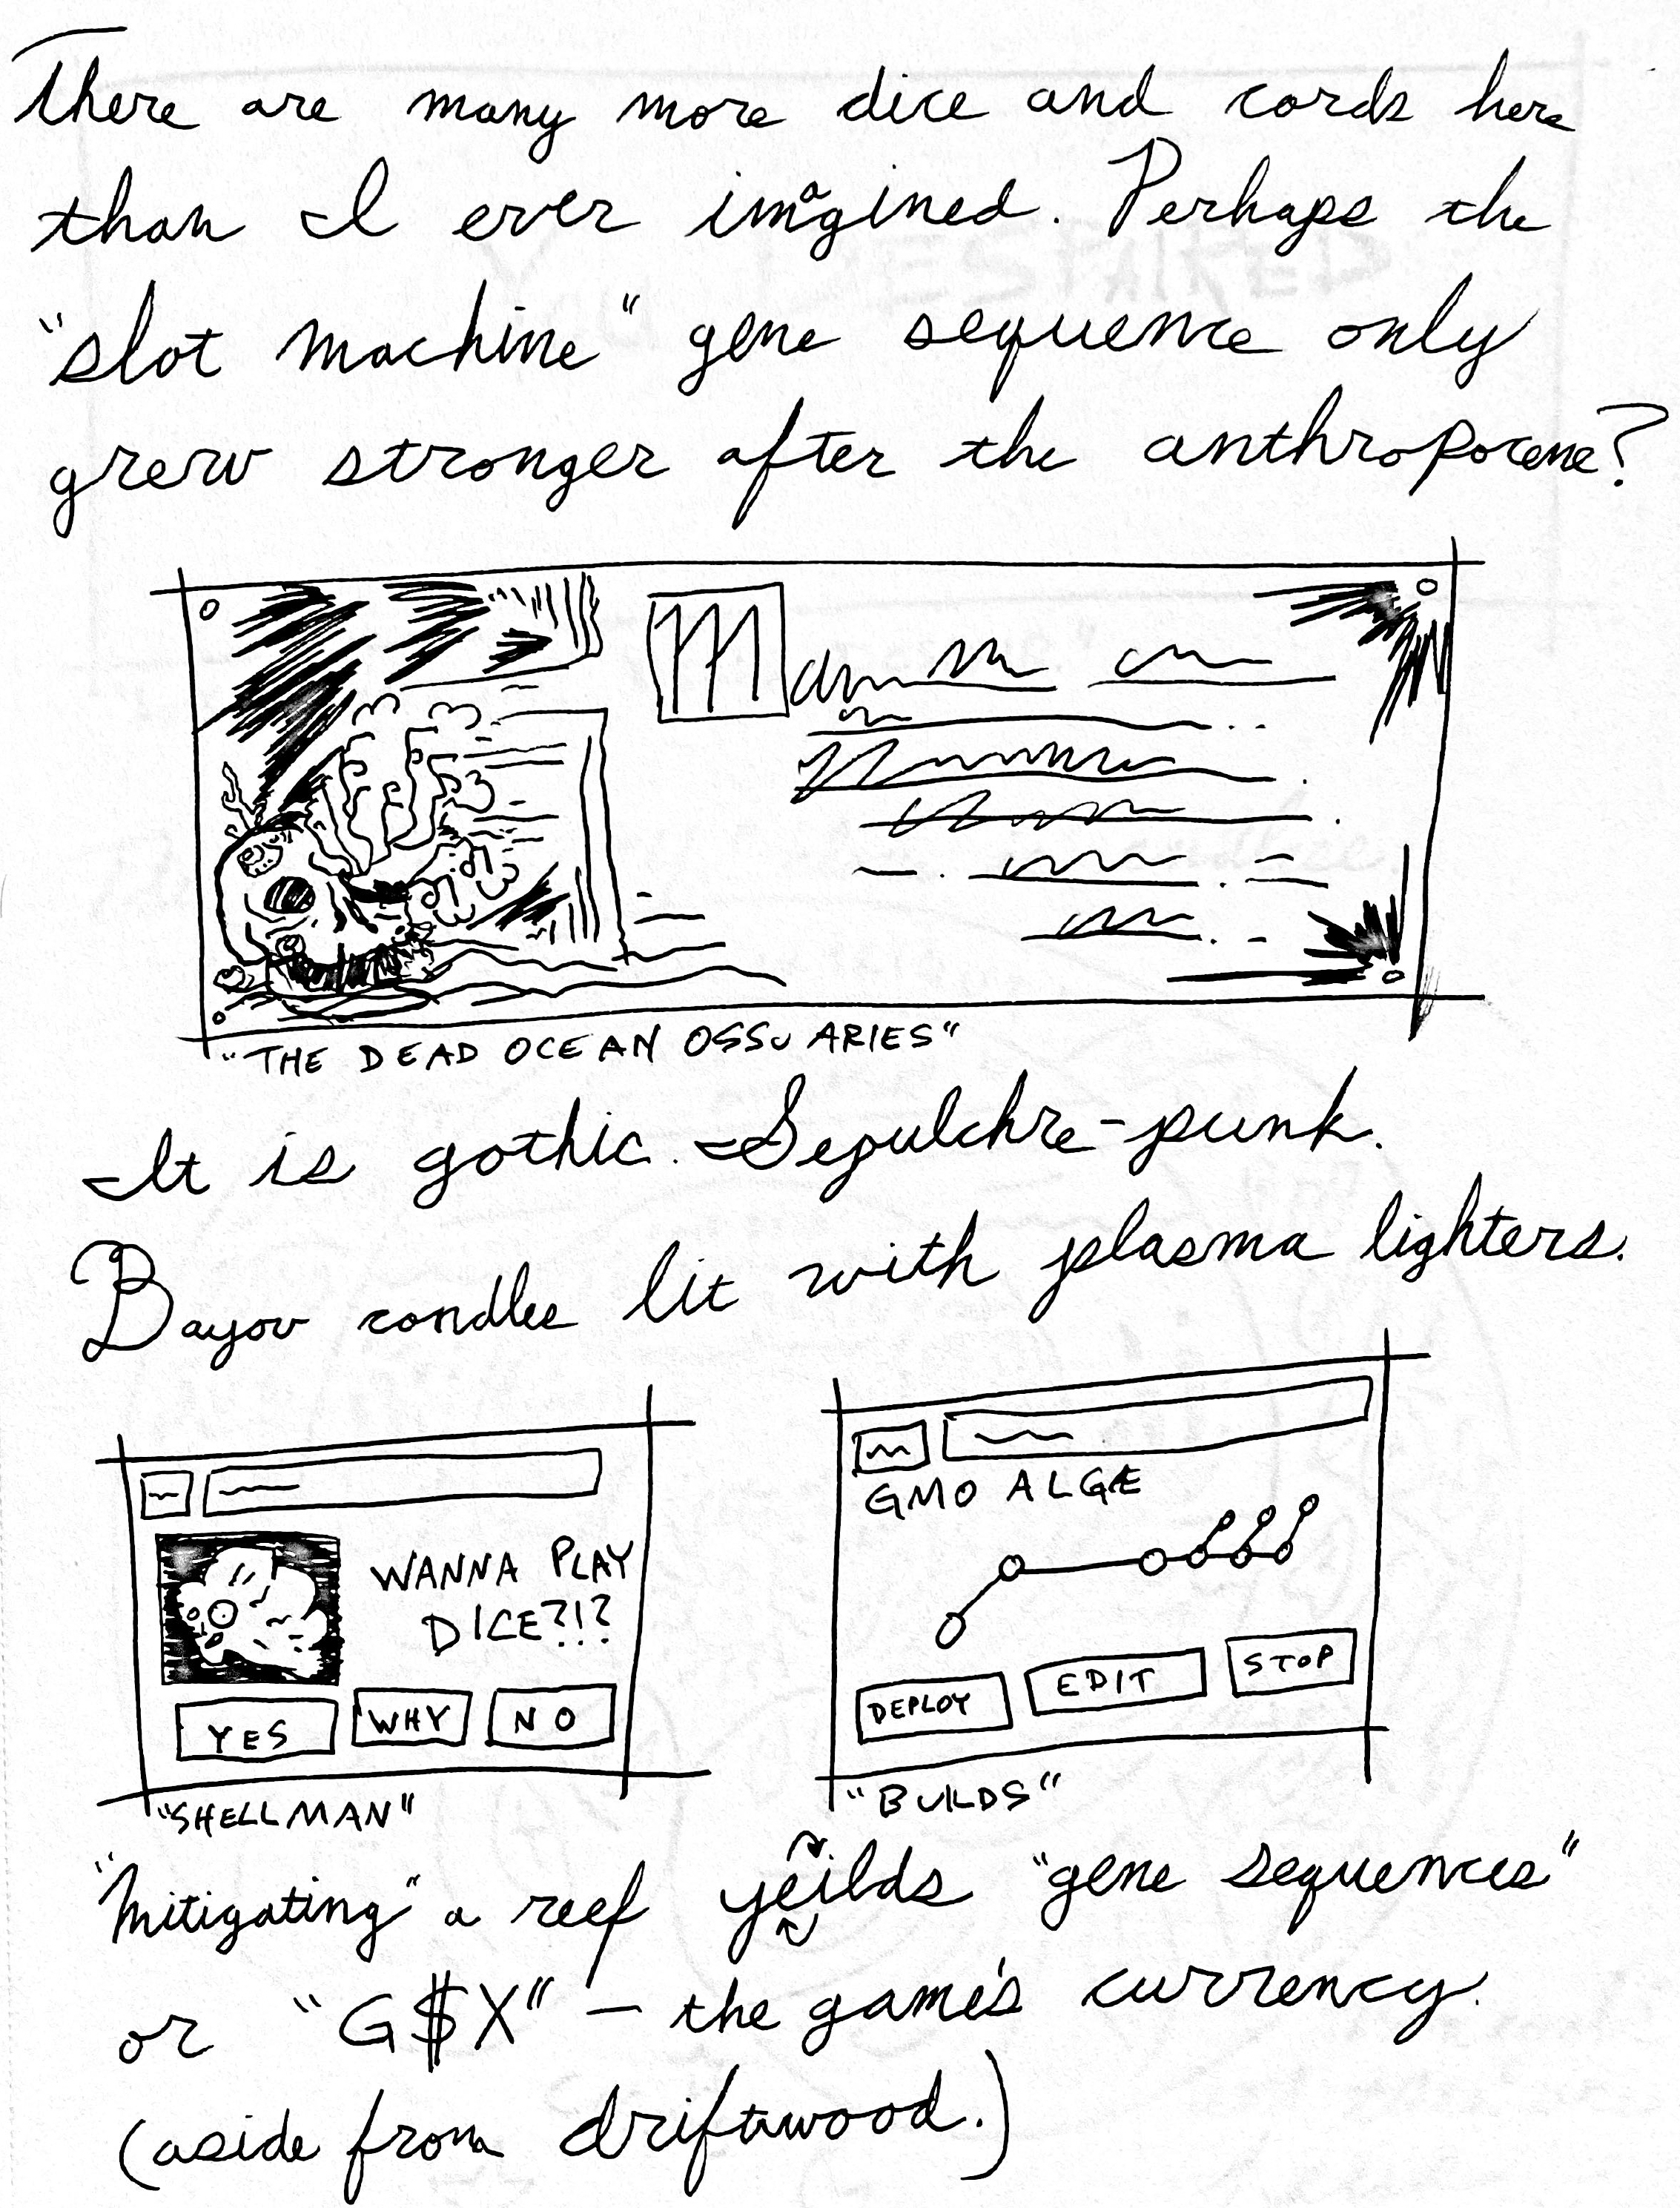 There are many more dice and cards here
than I ever imagined. Perhaps the
"slot machine" gene sequence only
grew stronger after the anthropocene?
"THE DEAD OCEAN OSSUARIES"
It is gothic. Sepulchre-punk.
Bayou candles lit with plasma lighters.
WANNA PLAY
DICE?!?
YES WHY NO
"SHELLMAN"
GMO ALGÆ
DEPLOY EDIT STOP
"BUILDS"
"Mitigating" a reef yeilds "gene sequences"
or "G$X" – the game's currency.
(aside from driftwood.)